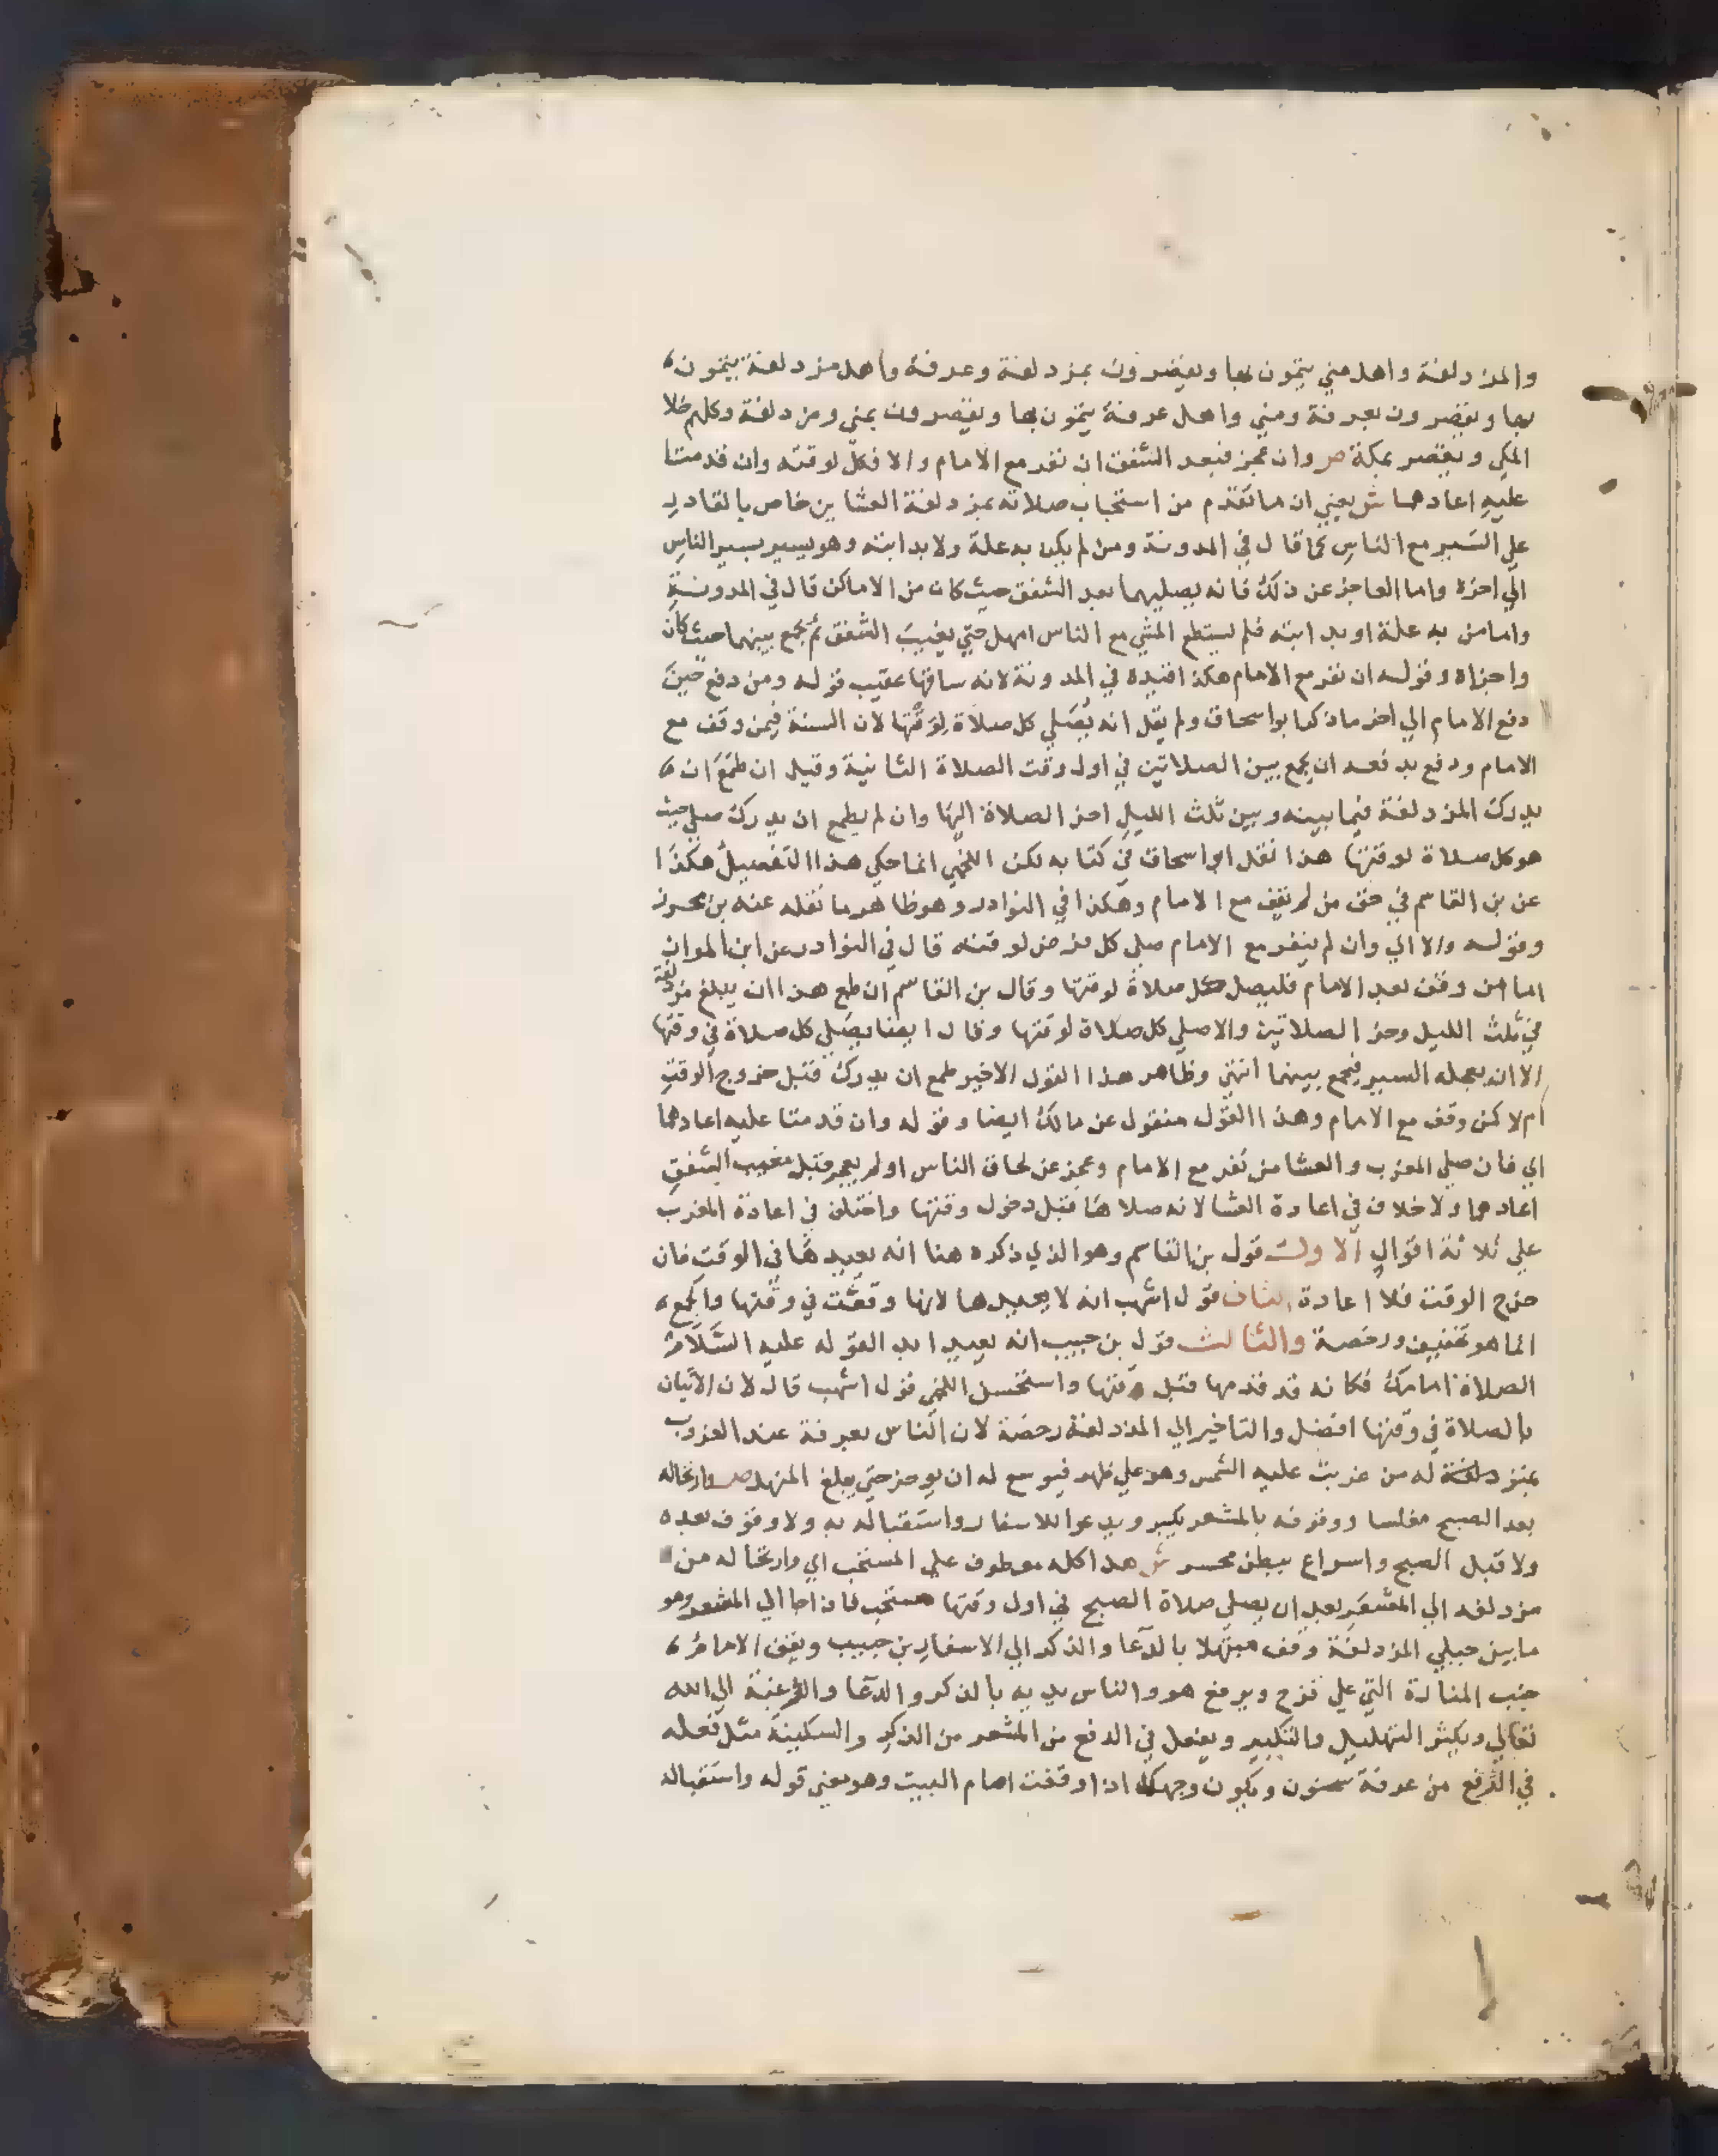 والمزدلفة واهل مني يتمون بها ويقصرون بمزدلفة وعرفة واهل مزدلفة يتمون
بها ويقصرون بعرفة ومني واهل عرفة يتمون بها ويقصرون بمني ومزدلفة وكلهم خلا
المكي ويقصر بمكة ص وان عجز فبعد الشفق ان نفر مع الامام والا فكل لوقته وان قدمتا
عليه اعادهما ش يعني ان ما تقدم من استحباب صلاته بمزدلفة العشاين خاص بالقادر
علي السير مع الناس كما قال في المدونة ومن لم يكن به علة ولا بدابته وهو يسير بسير الناس
الي اخره واما العاجز عن ذلك فانه يصليهما بعد الشفق حيث كان من الاماكن قال في المدونة
واما من به علة او بدابته فلم يستطع المشي مع الناس امهل حتي يغيب الشفق ثم يجمع بينهما حيث كان
واجزاه وقوله ان نفر مع الامام هكذا قيده في المدونة لانه ساقها عقيب قوله ومن دفع حين
دفع الامام الي اخر ما ذكر ابو اسحاق ولم يقل انه يصلي كل صلاة لوقتها لان السنة فيمن وقف مع
الامام ودفع بدفعه ان يجمع بين الصلاتين في اول وقت الصلاة الثانية وقيل ان طمع ان
يدرك المزدلفة فيما بينه وبين ثلث الليل اخر الصلاة اليها وان لم يطمع ان يدرك صلي حيث
هو كل صلاة لوقتها هذا نقل ابو اسحاق في كتابه لكن اللخمي انما حكي هذا التفصيل هكذا
عن بن القاسم في حق من لم يقف مع الامام وهكذا في النوادر وهو ظاهر ما نقله عنه بن محرز
وقوله والا الي وان لم ينفر مع الامام صلي كل فرض لوقته قال في النوادر عن ابن المواز
اما من وقف بعد الامام فليصل كل صلاة لوقتها وقال بن القاسم ان طمع هذا ان يبلغ مزدلفة
في ثلث الليل وخر الصلاتين والا صلي كل صلاة لوقتها وقال ايضا يصلي كل صلاة في وقتها
الا ان يعجله السير فيجمع بينهما انتهي وظاهر هذا القول الاخير طمع ان يدرك قبل خروج الوقت
ام لا كمن وقف مع الامام وهذا القول منقول عن مالك ايضا وقوله وان قدمتا عليه اعادهما
اي فان صلي المغرب والعشا من نفر مع الامام وعجز عن لحاق الناس او لم يعجز قبل مغيب الشفق
اعادهما ولا خلاف في اعادة العشا لانه صلاها قبل دخول وقتها واختلف في اعادة المغرب
علي ثلاثة اقوال الاول قول بن القاسم وهو الذي ذكره هنا انه يعيدها في الوقت فان
خرج الوقت فلا اعادة الثان قول اشهب انه لا يعيدها لانها وقعت في وقتها والجمع
انما هو تخفيف ورخصة والثالث قول بن حبيب انه يعيد ابدا لقوله عليه السلام
الصلاة امامك فكانه قد قدمها قبل وقتها واستحسن اللخمي قول اشهب قال لان الاتيان
بالصلاة في وقتها افضل والتاخير الي المزدلفة رخصة لان الناس بعرفة عند الغروب
بمزدلفة له من غربت عليه الشمس وهو علي ظهر فيوسع له ان يوخر حتي يبلغ المنهل ص وارتحاله
بعد الصبح مغلسا ووقوفه بالمشعر يكبر ويدعوا للاسفار واستقباله به ولا وقوف بعده
ولا قبل الصبح واسراع ببطن محسر ش هذا كله معطوف علي المستحب اي وارتحاله من
مزدلفه الي المشعر بعد ان يصلي صلاة الصبح في اول وقتها مستحب فاذا جا الي المشعر وهو
ما بين جبلي المزدلفة وقف مبتهلا بالدعا والذكر الي الاسفار بن حبيب ويقف الامام
جنب المنارة التي علي قزح ويرفع هو والناس يديه بالذكر والدعا والرغبة الي الله
تعالي ويكثر التهليل والتكبير ويفعل في الدفع من المشعر من الذكر والسكينة مثل فعله
في الدفع من عرفة سحنون ويكون وجهك اذا وقفت امام البيت وهو معني قوله واستقباله